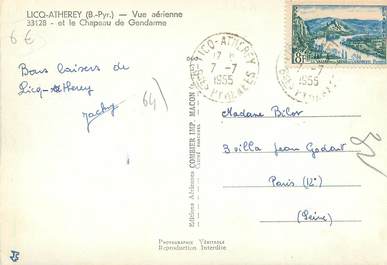 LICQ-ATHEREY (B.-Pyr.) — Vue aérienne
33128 - et le Chapeau de Gendarme
6€
LICQ-ATHEREY
7-7
1955
BSES PYRENEES
8F
Bons baisers de
Licq-Atherey
Jacky
64
Editions Aériennes COMBIER IMP. MACON
Madame Bilos
3 villa Jean Godart
Paris (12e)
(Seine)
PHOTOGRAPHIE VÉRITABLE
Reproduction Interdite